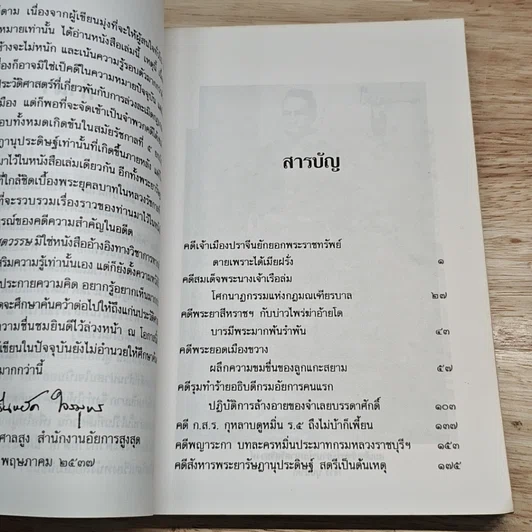 ตาม เนื่องจากผู้เขียนมุ่งที่จะให้ผู้สนใจ
หมายเท่านั้น ได้อ่านหนังสือเล่มนี้ เหตุนี้
จะไม่หนัก และเน้นความรู้รอบตัวมาก
ก็อาจมิใช่เป็คดีในความหมายปัจจุบัน
ประวัติศาสตร์ที่เกี่ยวพันกับการล่วงละเมิด
เมือง แต่ก็พอที่จะจัดเข้าเป็นจำพวกคดีได้
อบทั้งหมดเกิดขึ้นในสมัยรัชกาลที่ ๕
ฎานุประดิษฐ์เท่านั้นที่เกิดขึ้นภายหลัง
มาไว้ในหนังสือเล่มเดียวกัน อีกทั้งพระยา
ที่ใกล้ชิดเบื้องพระยุคลบาทในหลวงรัชกาล
ที่จะรวบรวมเรื่องราวของท่านมาไว้ใน
รณ์ของคดีความสำคัญในอดีต
ตวรรษ มิใช่หนังสืออ้างอิงทางวิชาการทาง
สริมความรู้เท่านั้นเอง แต่ก็ยังตั้งความหวัง
ประกายความคิด อยากรู้อยากเห็นมาก
จะศึกษาค้นคว้าต่อไปให้ถึงแก่นประวัติ
ความชื่นชมยินดีไว้ล่วงหน้า ณ โอกาสนี้
เขียนในปัจจุบันยังไม่อำนวยให้ศึกษาค้น
มากกว่านี้
ศาลสูง สำนักงานอัยการสูงสุด
พฤษภาคม ๒๕๓๗
สารบัญ
คดีเจ้าเมืองปราจีนยักยอกพระราชทรัพย์
ตายเพราะได้เมียฝรั่ง ๑
คดีสมเด็จพระนางเจ้าเรือล่ม
โศกนาฏกรรมแห่งกฎมณเฑียรบาล ๒๗
คดีพระยาสีหราชฯ กับบ่าวไพร่ฆ่าอ้ายโต
บารมีพระมากพ้นรำพัน ๔๓
คดีพระยอดเมืองขวาง
ผลึกความขมขื่นของลูกแกะสยาม ๕๗
คดีรุมทำร้ายอธิบดีกรมอัยการคนแรก
ปฏิบัติการล้างอายของจำเลยบรรดาศักดิ์ ๑๐๓
คดี ก.ส.ร. กุหลาบดูหมิ่น ร.๕ ถึงไม่บ้าก็เพี้ยน ๑๓๗
คดีพญาระกา บทละครหมิ่นประมาทกรมหลวงราชบุรีฯ ๑๕๓
คดีสังหารพระยารัษฎานุประดิษฐ์ สตรีเป็นต้นเหตุ ๑๗๕